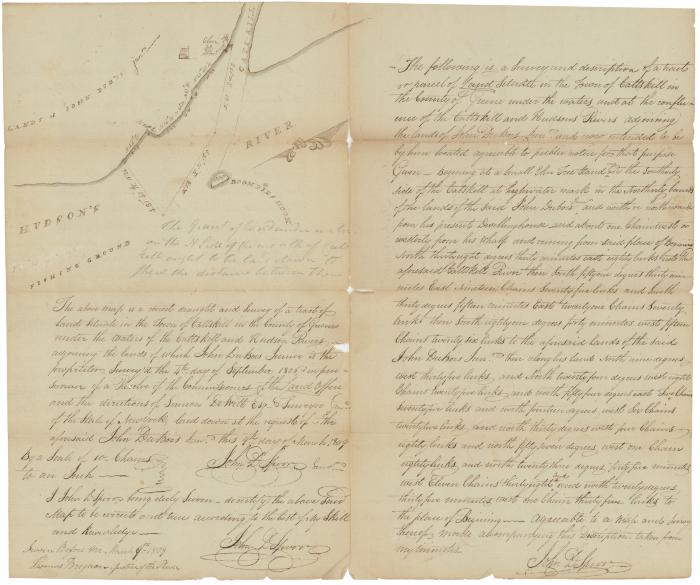 LANDS OF JOHN DUBOIS Junr.
Elm
CATSKILL
RIVER
BOOMPIES HOOK
HUDSON'S
FISHING GROUND
The Grant of Land under water
on the N. Side of the mouth of Catts
kill ought to be laid down to
shew the distance between them
The above map is a correct draught and Survey of a tract of
Land Situate in the Town of Cattskill in the County of Greene
under the waters of the Cattskill and Hudson Rivers
adjoining the lands of which John DuBois Junior is the
proprietor Survey'd the 4th day of September 1808 in pur-
suance of a Resolve of the Commissioners of the Land Office
and the directions of Simeon DeWitt Esq. Surveyor Genl.
of the State of New York laid down at the request of the
aforesaid John DuBois Junr. this 9th day of March 1809
By a Scale of 10 Chains
to an Inch
John D Spoor
I John D Spoor being duly Sworn do certify the above
Map to be correct and true according to the best of my Skill
and Knowledge
John D Spoor
Sworn Before me March 9th 1809
Thomas Justice of the Peace
The following is a Survey and description of a tract
or parcel of Land Situate in the Town of Cattskill in
the County of Greene under the waters and at the conflu-
ence of the Cattskill and Hudsons Rivers adjoining
the lands of John DuBois Junr. and now intended to be
by him located agreeable to public notice for that purpose
Given Begining at a Small Elm Tree Standing on the Southerly
side of the Catskill at highwater mark in the Northerly bounds
of the lands of the said John Dubois and north
from his present Dwellinghouse and about one Chain
westerly from his Wharf and running from said place of Begining
North thirty eight degrees thirty minutes east eighty links into the
aforesaid Cattskill River then South fifty one degrees thirty min
nutes East Nineteen Chains Seventy five links and South
thirty degrees fifteen minutes East twenty one Chains Seventy
links then South eighty one degrees forty minutes west fifteen
Chains twenty six links to the aforesaid lands of the said
John DuBois Junr. then along his land North nine degrees
west thirty five links, and North twenty four degrees west eight
Chains twenty five links, and north fifty five degrees east Six Chains
twenty five links and north fourteen degrees west Six Chains
twenty five links, and north thirty degrees west four Chains
eighty links and north fifty seven degrees west one Chain
eighty links, and north twenty three degrees forty five minutes
west Eleven Chains thirty eight links and north twenty degrees
thirty five minutes west Six Chains thirty five links to
the place of Begining Agreeable to a map and Survey
thereof made accompanying this Description taken from
my minutes
John D Spoor